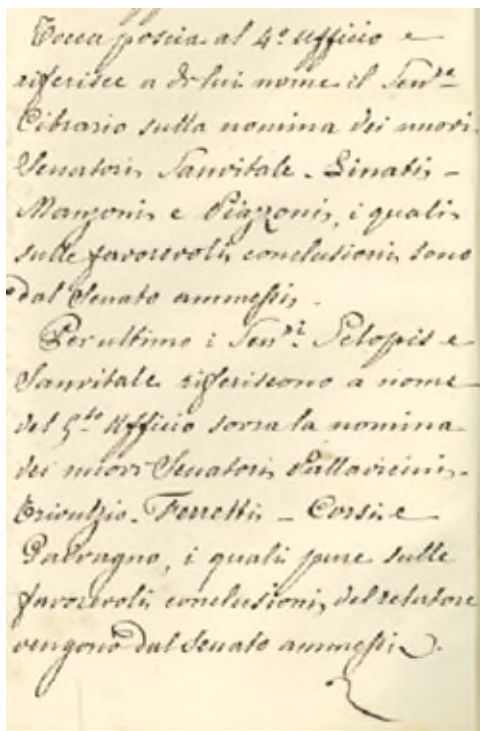 Tocca poscia al 4.° Ufficio e
riferisce a di lui nome il Sen.re
Cibrario sulla nomina dei nuovi
Senatori Sanvitale - Linati -
Manzoni e Piazzoni, i quali
sulle favorevoli conclusioni sono
dal Senato ammessi.
Per ultimo i Sen.ri Sclopis e
Sanvitale riferiscono a nome
del 5.to Ufficio sovra la nomina
dei nuovi Senatori Pallavicini-
Trivulzio - Ferretti - Corsi e
Dalvagno, i quali pure sulle
favorevoli conclusioni del relatore
vengono dal Senato ammessi.